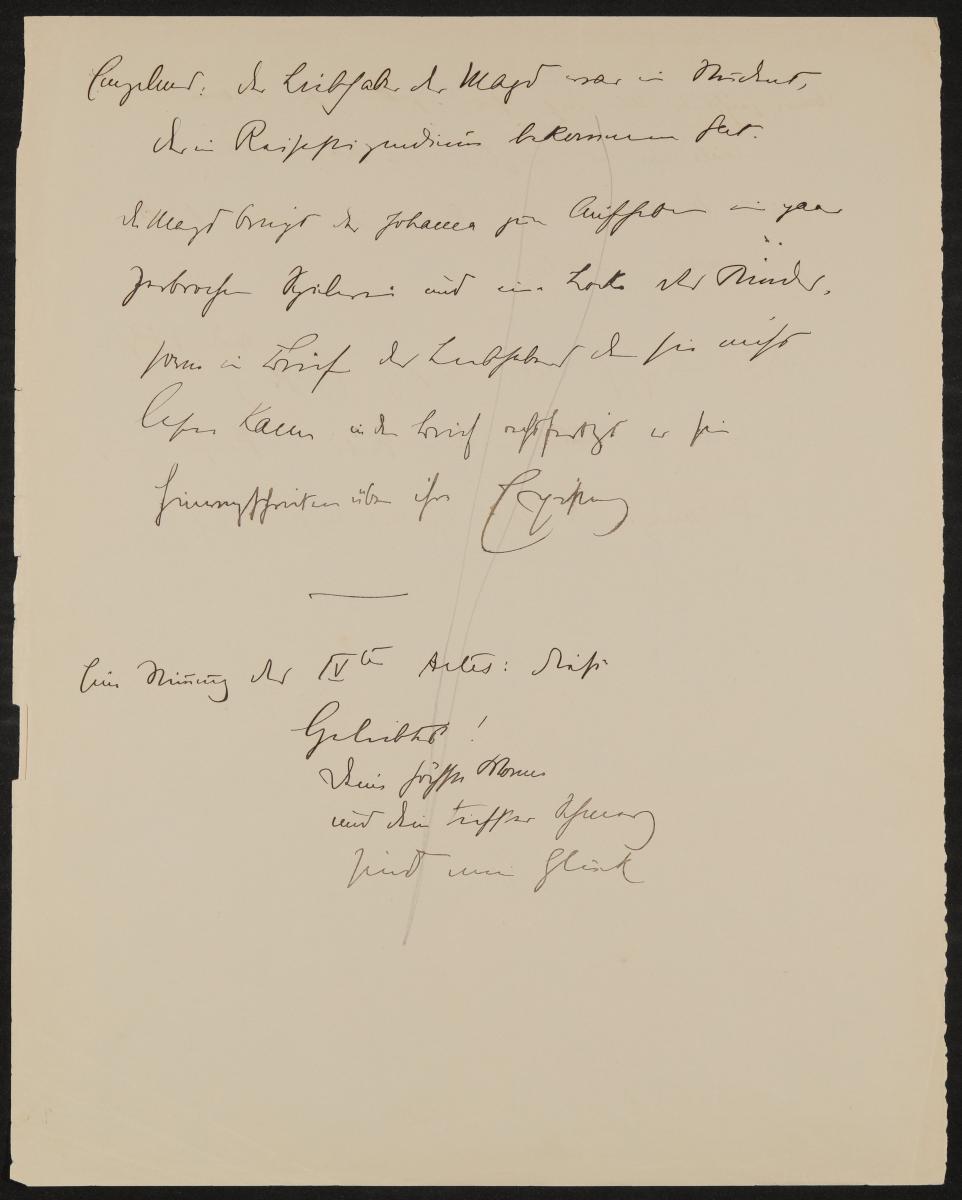 Einzelnes: der Liebhaber der Magd war ein Student,
der ein Reisestipendium bekommen hat.
die Magd bringt der Johanna zum Aufheben ein paar
zerbrochene Spielereien und eine Locke der Kinder,
ferner ein Brief des Liebhabers den sie nicht
lesen kann in dem Brief rechtfertigt er sein
Hinwegschreiten über ihre Existenz
Eine Stimmung des IV<sup>ten</sup> Actes: diese
Geliebter!
Deine höchste Wonne
und dein tiefster Schmerz
sind mein Glück